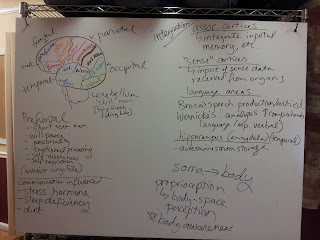 frontal
parietal
occipital
temporal
cerebellum
Prefrontal
- short term mem.
- will power
- personality
- emotional processing
- self-awareness
- self regulation
(anterior cingulate)
communication influences
- stress hormone
- sleep deficiency
- diet
Integration
assoc cortices
↳ integrate input w/
memory, etc
"sense" cortices
↳ input of sense data
received from organs
language areas
Broca's speech production/cortical
Wernicke's analysis & comprehension
language (esp. verbal)
hippocampus (amygdala)(temporal)
- determines mem storage
soma → body
proprioception
↳ body-space
perception
body awareness